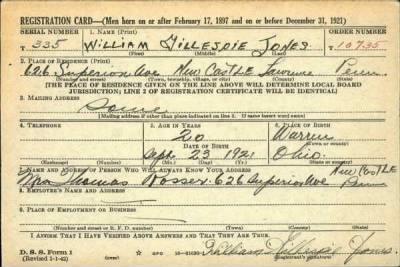 REGISTRATION CARD—(Men born on or after February 17, 1897 and on or before December 31, 1921)
SERIAL NUMBER 1. NAME (Print) ORDER NUMBER
T 335 WILLIAM GILLESPIE JONES T 10735
(First) (Middle) (Last)
2. PLACE OF RESIDENCE (Print)
626 Superior Ave New CASTLE Lawrence Penn
(Number and street) (Town, township, village, or city) (County) (State)
[THE PLACE OF RESIDENCE GIVEN ON THE LINE ABOVE WILL DETERMINE LOCAL BOARD
JURISDICTION; LINE 2 OF REGISTRATION CERTIFICATE WILL BE IDENTICAL]
3. MAILING ADDRESS
Same
[Mailing address if other than place indicated on line 2. If same insert word same]
4. TELEPHONE 5. AGE IN YEARS 6. PLACE OF BIRTH
20 Warren
DATE OF BIRTH (Town or county)
Sept. 23 1921 Ohio
(Exchange) (Number) (Mo.) (Day) (Yr.) (State or country)
7. NAME AND ADDRESS OF PERSON WHO WILL ALWAYS KNOW YOUR ADDRESS New CASTLE
Mrs Thomas Vosser 626 Superior Ave Penn
8. EMPLOYER'S NAME AND ADDRESS
9. PLACE OF EMPLOYMENT OR BUSINESS
(Number and street or R. F. D. number) (Town) (County) (State)
I AFFIRM THAT I HAVE VERIFIED ABOVE ANSWERS AND THAT THEY ARE TRUE.
D. S. S. Form 1
(Revised 1-1-42) GPO William Gillespie Jones
(Registrant's signature)